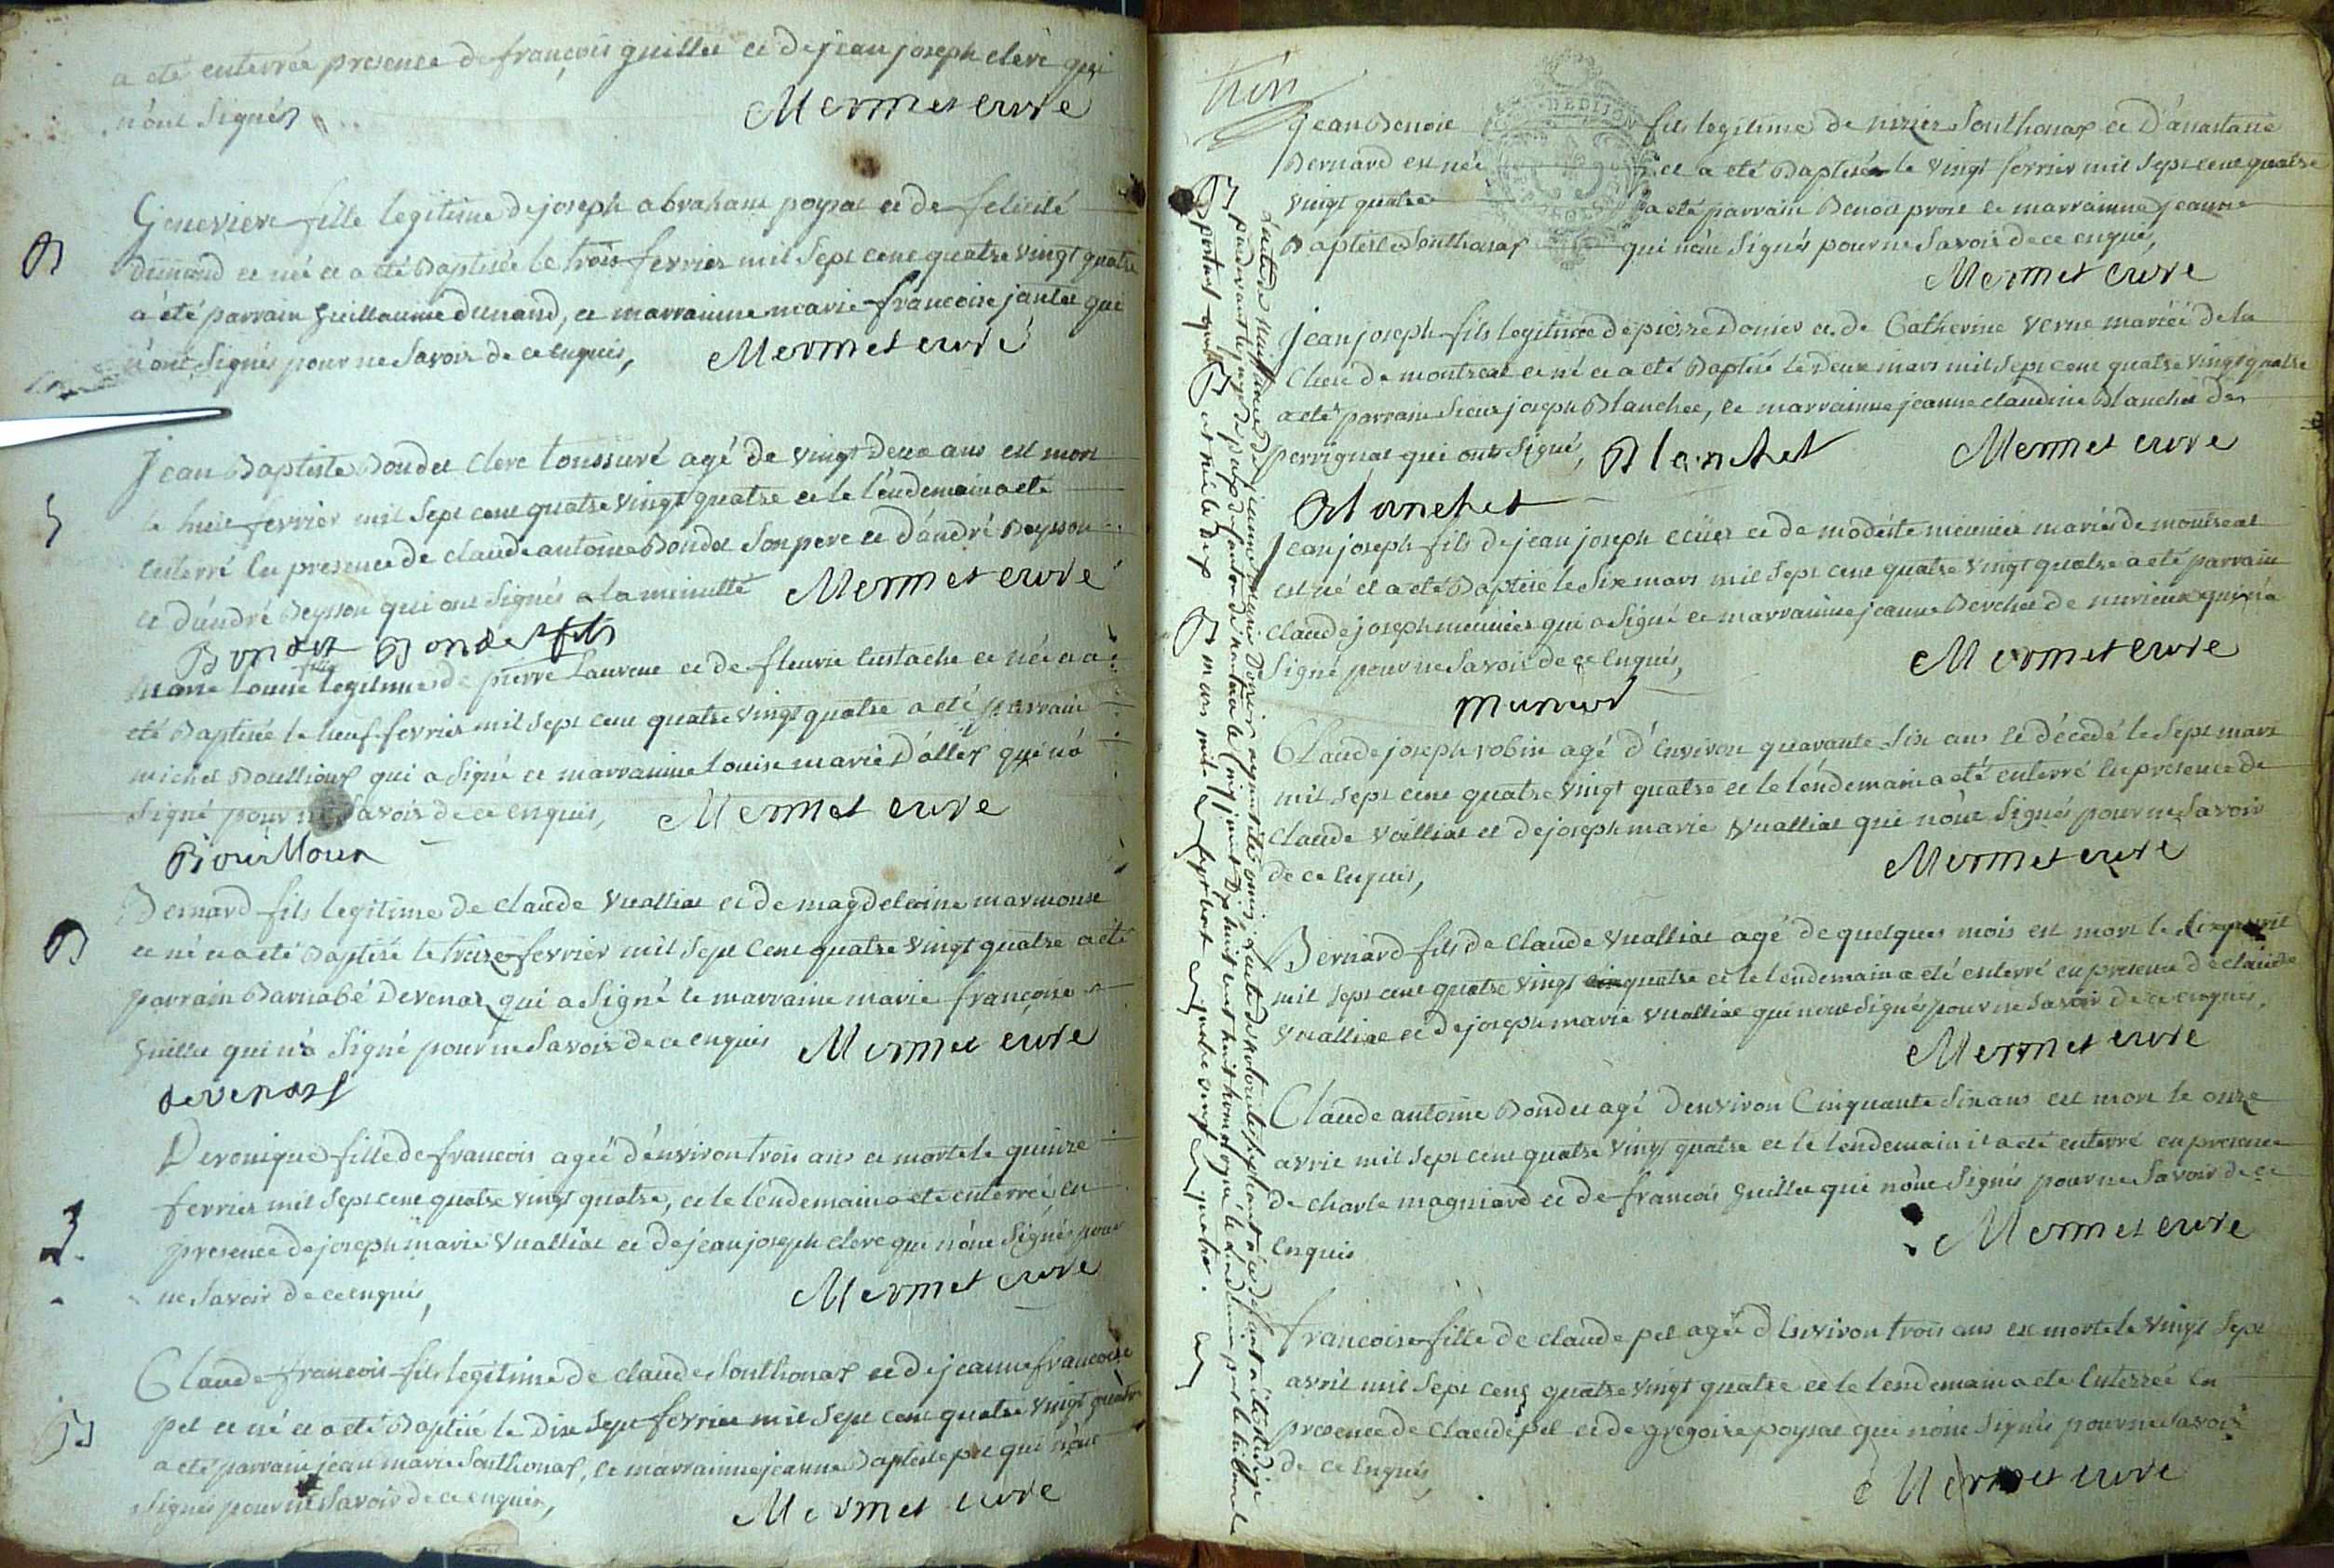 a eté enterrée presence de françois guillet et de jean joseph clerc qui
n'ont signés
Mermet curé
B
Genevieve fille legitime de joseph abraham poysat et de felicité
dunand et né et a eté Baptisée le trois fevrier mil sept cent quatre vingt quatre
a été parrain guillaume dunand, et marrainne marie francoise jantet qui
n'ont signés pour ne savoir de ce enquis, Mermet curé
Jean Baptiste Bondet clerc tonssuré agé de vingt deux ans est mort
le huit fevrier mil sept cent quatre vingt quatre et le lendemain a eté
enterré en presence de claude antoine Bondet son pere et d'andré Beysson
et d'andré Beysson qui ont signés a la minutte Mermet curé
Bondet Bondet fils
marie Louise fille legitime de pierre Laurent et de fleurie Eustache et née et a
eté Baptisée le neuf fevrier mil sept cent quatre vingt quatre a eté parrain
michel Boullioux qui a signé et marrainne Louise marie D'allex qui n'a
signé pour ne savoir de ce enquis, Mermet curé
Bouilloux
B
Bernard fils legitime de claude Vualliat et de magdeleine marmouse
et né et a eté Baptisé le treize fevrier mil sept cent quatre vingt quatre a eté
parrain Barnabé Devenat qui a signé et marraine marie françoise
guillet qui n'a signé pour ne savoir de ce enquis Mermet curé
devenass
Veronique fille de francois agée d'environ trois ans et morte le quinze
fevrier mil sept cent quatre vingt quatre, et le lendemain a eté enterrée en
presence de joseph marie Vualliat et de jean joseph clerc qui n'ont signés pour
ne savoir de ce enquis, Mermet curé
B
Claude francois fils legitime de claude Sonthonax et de jeanne francoise
pet et né et a eté Baptisé le Dix sept fevrier mil sept cent quatre vingt quatre
a eté parrain jean marie Sonthonax, et marrainne jeanne Baptiste pet qui n'ont
signés pour ne savoir de ce enquis, Mermet curé
DE DIJON
Jean Benoit fils legitime de nizier Sonthonax et D'anastasie
Bernard est né et a eté Baptisé le vingt fevrier mil sept cent quatre
vingt quatre a eté parrain Benoit prost et marrainne jeanne
Baptiste Sonthonax qui n'ont signés pour ne savoir de ce enquis,
Mermet curé
jean joseph fils legitime de pierre Donier et de Catherine Verne mariée de la
Cluse de montreal et né et a eté Baptisé le Deux mars mil sept cent quatre vingt quatre
a eté parrain sieur joseph Blanchet, et marrainne jeanne claudine Blanchet de
perrignat qui ont signé, Blanchet Mermet curé
Blanchet
jean joseph fils de jean joseph ecuer et de modeste meunier mariés de montreal
est né et a eté Baptisé le six mars mil sept cent quatre vingt quatre a eté parrain
claude joseph meunier qui a signé et marrainne jeanne Berchet de nurieux qui n'a
signé pour ne savoir de ce enquis, Mermet curé
munier
Claude joseph robin agé d'environ quarante six ans et décedé le sept mars
mil sept cent quatre vingt quatre et le lendemain a eté enterré en presence de
claude Vailliat et de joseph marie Vualliat qui n'ont signés pour ne savoir
de ce enquis, Mermet curé
Bernard fils de claude Vualliat agé de quelques mois est mort le avril
mil sept cent quatre vingt quatre et le lendemain a eté enterré en presence de claude
Vualliat et de joseph marie Vualliat qui n'ont signés pour ne savoir de ce enquis,
Mermet curé
Claude antoine Bondet agé d'environ Cinquante six ans est mort le onze
avril mil sept cent quatre vingt quatre et le lendemain il a eté enterré en presence
de charle magniard et de francois guillet qui n'ont signés pour ne savoir de ce
enquis Mermet curé
francoise fille de claude pet agée d'environ trois ans est morte le vingt sept
avril mil sept cent quatre vingt quatre et le lendemain a eté enterrée en
presence de claude pet et de gregoire poysat qui n'ont signés pour ne savoir
de ce enquis, Mermet curé
L'acte de naissance de jeanne marie Donier ayant été omis
par devant le juge de paix du canton de nantua le cinq jour de huit cent huit homologué le lendemain par le tribunal
portant qu'elle est née le dix mars mil sept cent quatre vingt quatre.